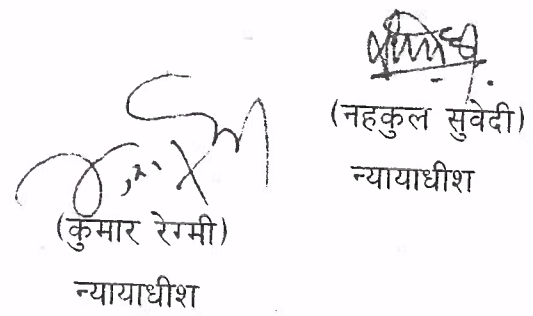 (नहकुल सुवेदी)
न्यायाधीश
(कुमार रेग्मी)
न्यायाधीश